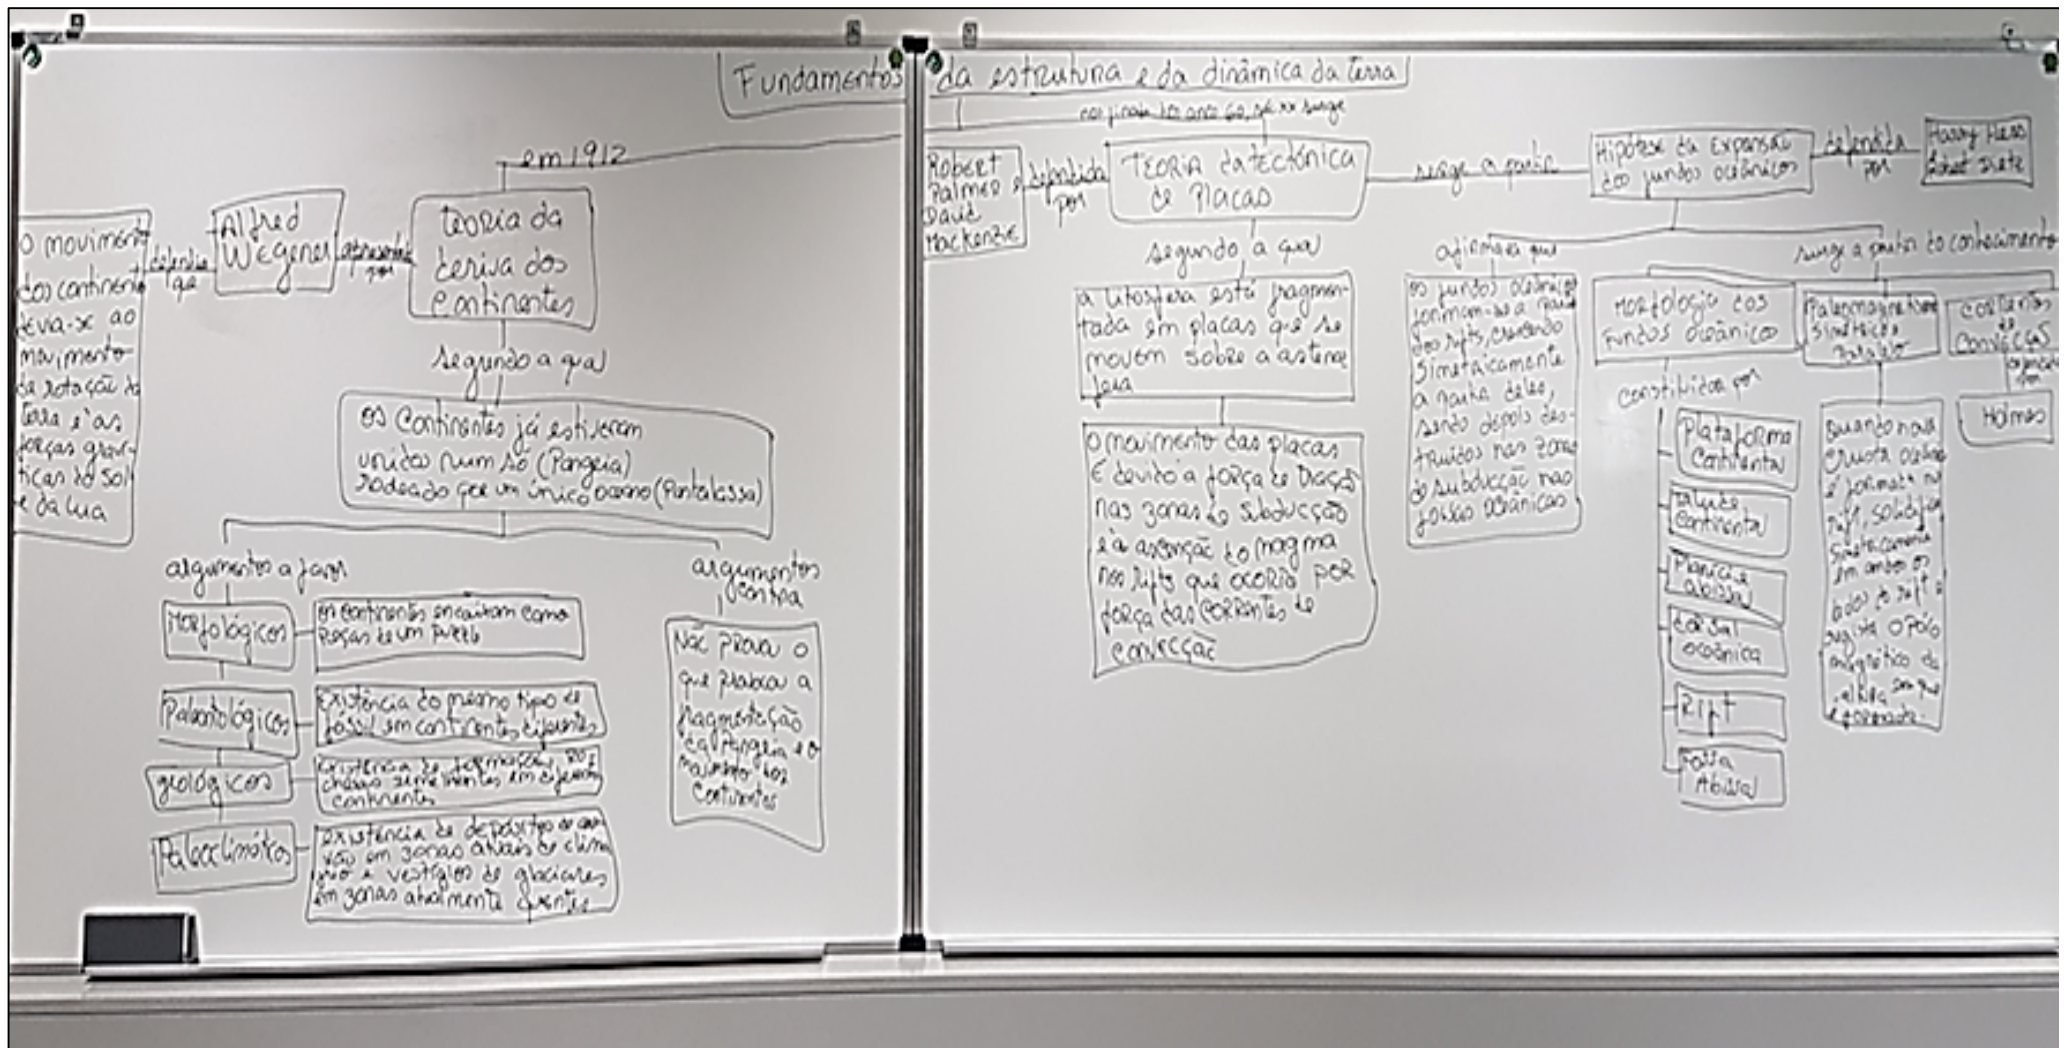 Fundamentos da estrutura e da dinâmica da terra
em 1912
teoria da
deriva dos
continentes
apresentada
por
Alfred
Wegener
defendia
que
O moviment
dos continent
devia-se ao
movimento
de rotação da
terra e às
forças graví-
ticas do Sol
e da lua
segundo a qual
os continentes já estiveram
unidos num só (Pangeia)
rodeado por um único oceano (Pantalassa)
argumentos a favor
Morfológicos
os continentes encaixam como
peças de um puzzle
Paleontológicos
Existência do mesmo tipo de
fóssil em continentes diferentes
geológicos
Existência de formações
semelhantes em diferentes
continentes
Paleoclimáticos
existência de depósitos de
em zonas atuais de clima
frio e vestígios de glaciares
em zonas atualmente quentes
argumentos
contra
Não prova o
que provocou a
fragmentação
da Pangeia e o
movimento dos
continentes
nos finais dos anos 60, séc XX surge
Teoria da tectónica
de Placas
defendida
por
Robert
Palmer e
David
Mackenzie
segundo a qual
a litosfera está fragmen-
tada em placas que se
movem sobre a astenos
fera
o movimento das placas
É devido à força de tração
nas zonas de subducção
e à ascenção do magma
nos rifts que ocorria por
força das correntes de
convecção
surge a partir
Hipótese da expansão
dos fundos oceânicos
defendida
por
Harry Hess
afirmava que
os fundos oceânicos
formam-se a partir
dos rifts, crescendo
simetricamente
a partir deles,
sendo depois des-
truídos nas zonas
de subducção nas
fossas oceânicas
surge a partir do conhecimento
Morfologia dos
Fundos oceânicos
constituídos por
Plataforma
continental
talude
continental
Planície
abissal
dorsal
oceânica
Rift
Fossa
Abissal
Paleomagnetismo
simétrico
Quando nova
crusta oceânica
é formada no
rift, solidifica
simetricamente
em ambos os
lados do rift e
regista o Polo
magnético da
altura em que
é formada
correntes
de
convecção
por
Holmes